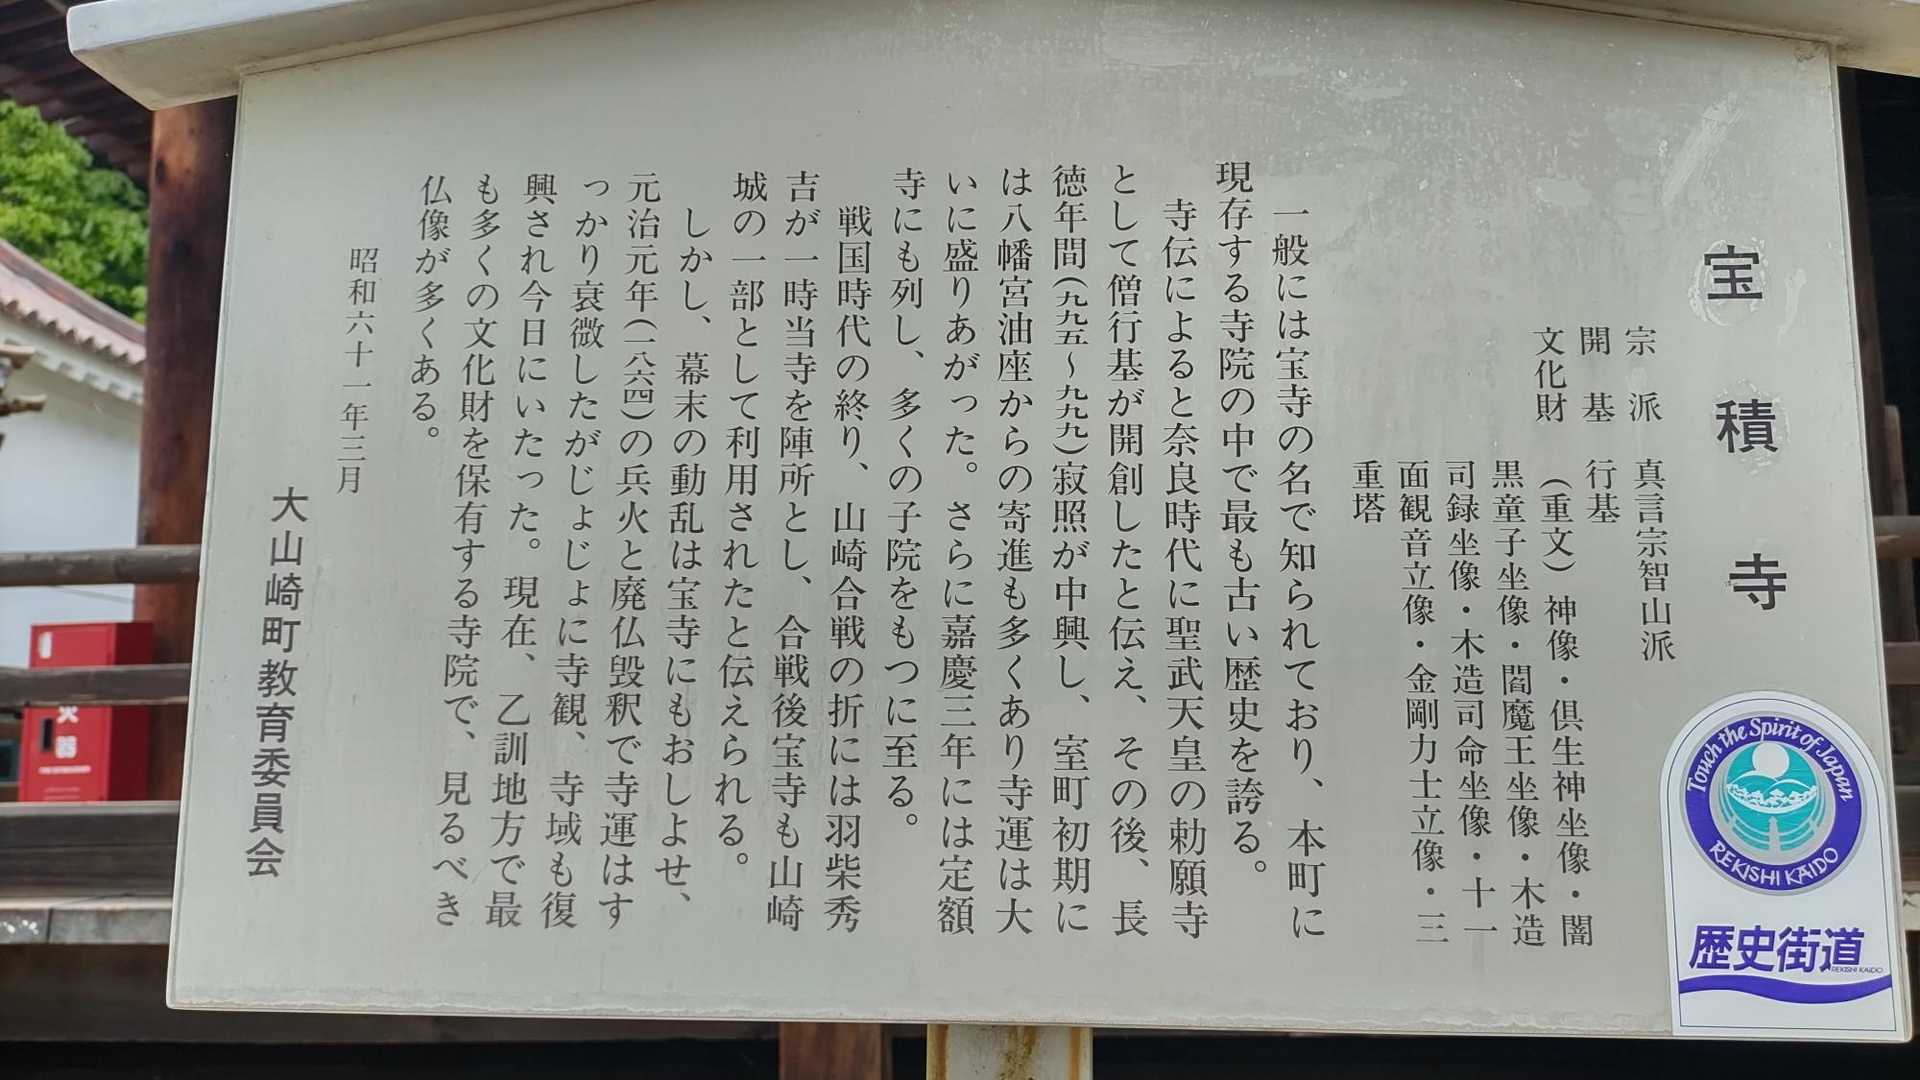 宝積寺
宗派 真言宗智山派
開基 行基
文化財 (重文)神像・倶生神坐像・闇
黒童子坐像・閻魔王坐像・木造
司録坐像・木造司命坐像・十一
面観音立像・金剛力士立像・三
重塔
一般には宝寺の名で知られており、本町に
現存する寺院の中で最も古い歴史を誇る。
寺伝によると奈良時代に聖武天皇の勅願寺
として僧行基が開創したと伝え、その後、長
徳年間(九九五～九九九)寂照が中興し、室町初期に
は八幡宮油座からの寄進も多くあり寺運は大
いに盛りあがった。さらに嘉慶三年には定額
寺にも列し、多くの子院をもつに至る。
戦国時代の終り、山崎合戦の折には羽柴秀
吉が一時当寺を陣所とし、合戦後宝寺も山崎
城の一部として利用されたと伝えられる。
しかし、幕末の動乱は宝寺にもおしよせ、
元治元年(一八六四)の兵火と廃仏毀釈で寺運はす
っかり衰微したがじょじょに寺観、寺域も復
興され今日にいたった。現在、乙訓地方で最
も多くの文化財を保有する寺院で、見るべき
仏像が多くある。
昭和六十一年三月
大山崎町教育委員会
Touch the Spirit of Japan
REKISHI KAIDO
歴史街道
REKISHI KAIDO
火
器